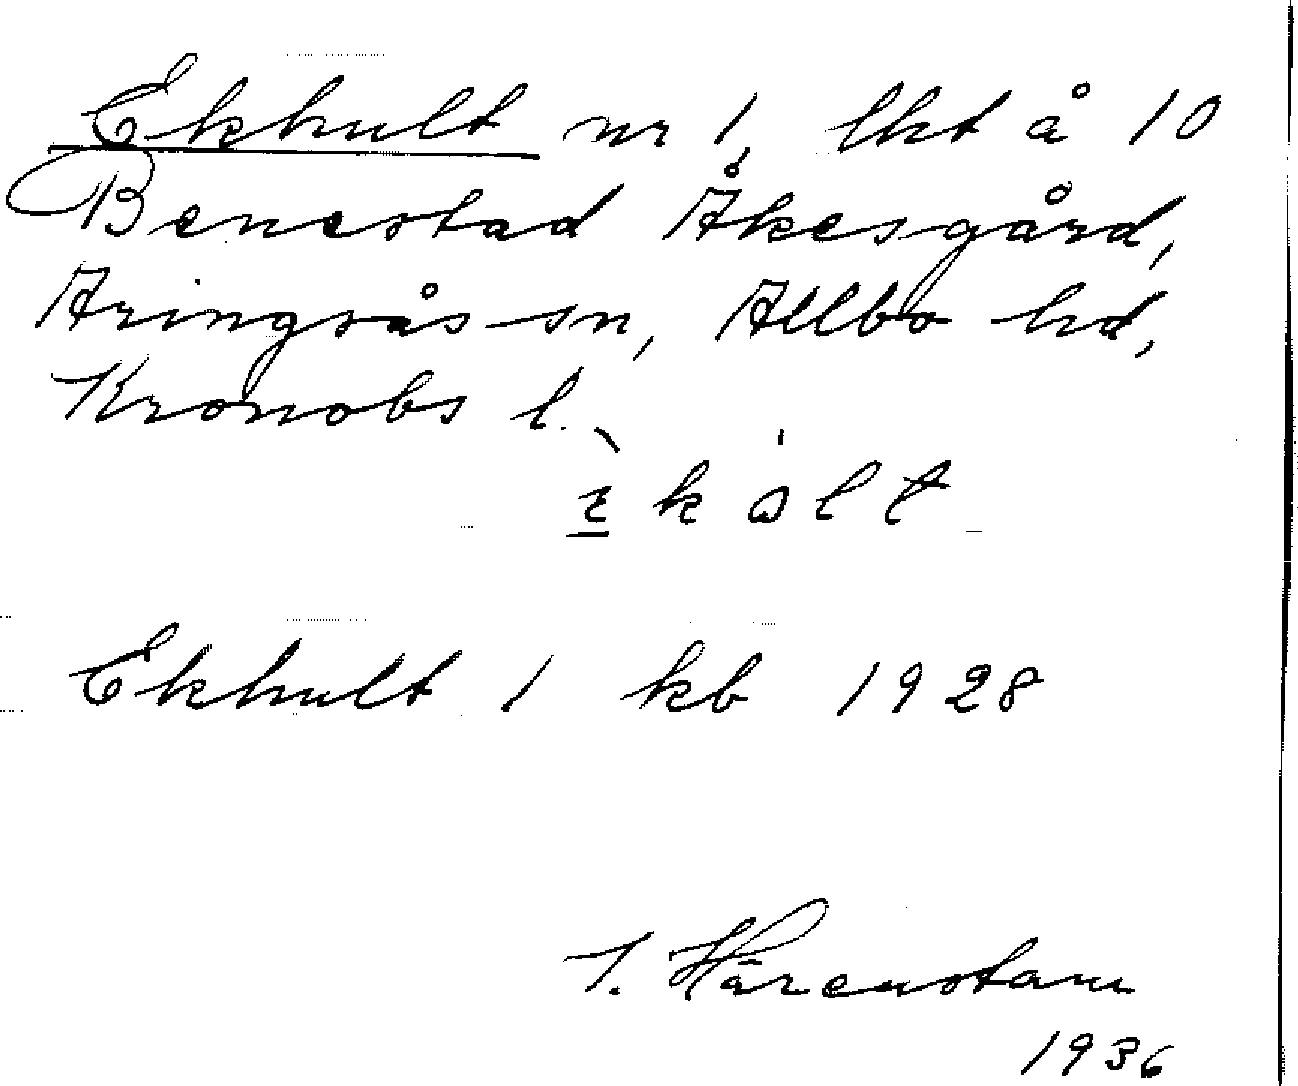 Ekhult nr 1, lht å 10
Benestad Åkesgård,
Aringsås sn, Allbo hd,
Kronobs l.
Ekhult 1 kb 1928
I. Härenstam
1936